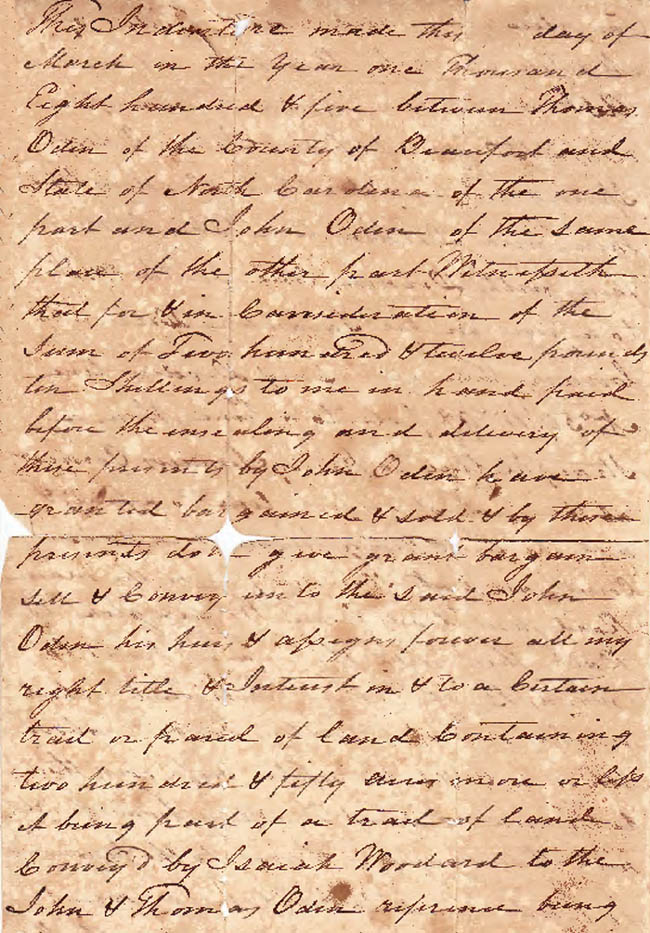 This Indenture made this day of
March in the Year one Thousand
Eight hundred & five between Thomas
Oden of the County of Beaufort and
State of North Carolina of the one
part and John Oden of the same
place of the other part Witnesseth
that for & in Consideration of the
Sum of Two hundred & twelve pounds
ten Shillings to me in hand paid
before the ensealing and delivery of
these presents by John Oden have
granted bargained & sold & by these
presents do give grant bargain
sell & Convey unto the said John
Oden his heirs & assigns forever all my
right title & Interest in & to a Certain
tract or parcel of land Containing
two hundred & fifty acres more or less
it being part of a tract of land
Convey'd by Isaiah Woodard to the
John & Thomas Oden reference being